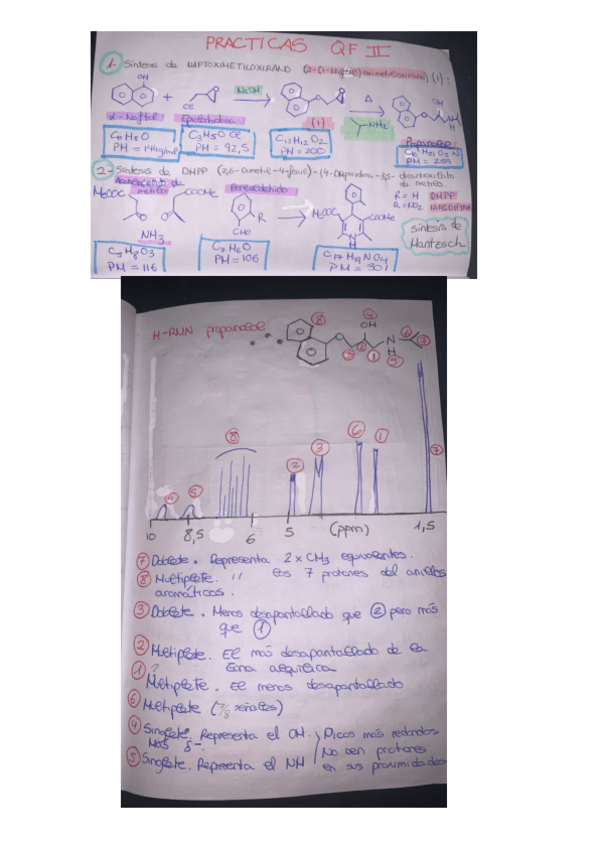 PRACTICAS QF II
1- Síntesis de NAFTOXIMETILOXIRANO (2-(1-Naftil)oximetiloxirano) (1):
OH
+
Ce
NaOH
O
O
(1)
Δ
NH2
O
OH
N
H
α-Naftol
Epiclorhidrina
Propanolol
C10H8O
PM = 144g/mol
C3H5O Ce
PM = 92,5
C13H12O2
PM = 200
PM = 259
2- Síntesis de DHPP (2,6-Dimetil-4-fenil)-1,4-DHpiridina-3,5-dicarboxilato
de metilo.
Acetoacetato de
metilo
Benzaldehído
R = H DHPP
R = NO2 NIFEDIPINA
MeOOC
COOMe
O
O
NH3
R
CHO
MeOOC
COOMe
N
H
Síntesis de
Hantzsch
C5H8O3
PM = 116
C7H6O
PM = 106
C17H19NO4
PM = 301
H-RMN propanolol
8
4
OH
O
N
H
3
2
1
5
6
7
4
5
8
2
3
6
1
7
10
8,5
6
5
(ppm)
1,5
7 Doblete. Representa 2 x CH3 equivalentes.
8 Multiplete. " los 7 protones del anillos
aromáticos.
3 Doblete. Menos desapantallado que 2 pero más
que 1
2 Multiplete. El más desapantallado de la
zona alquílica
1 ?
Multiplete. El menos desapantallado
6 Multiplete (7/8 señales)
4 Singlete. Representa el OH.
Más δ-.
5 Singlete. Representa el NH
Picos más redondos
No ven protones
en sus proximidades